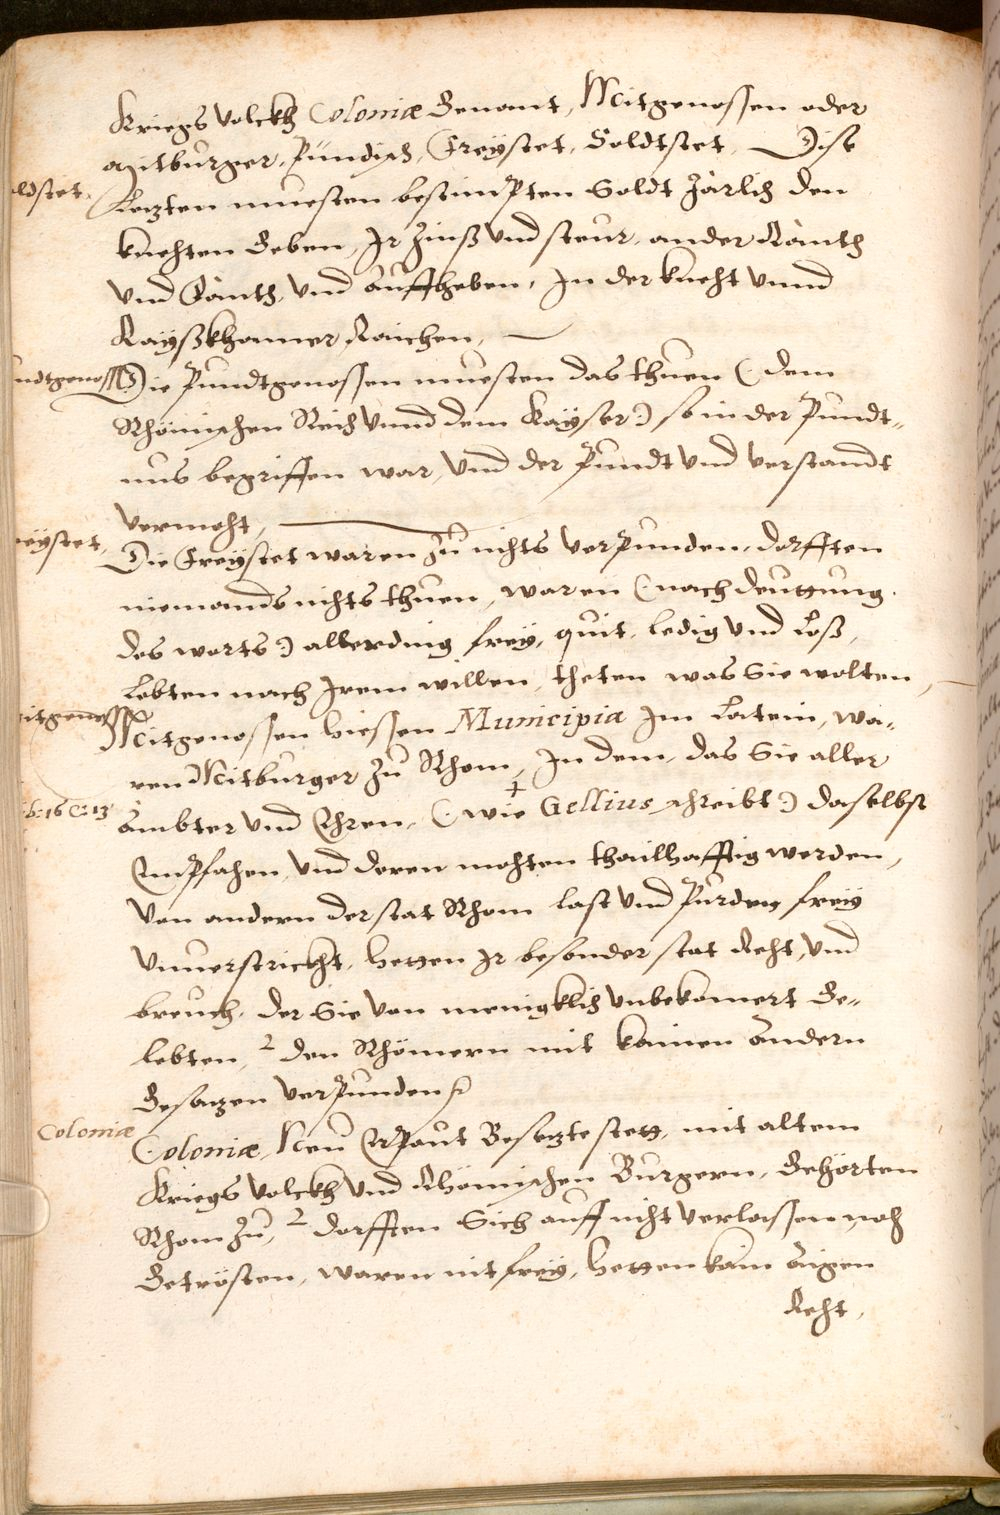 Kriegs Volckh Coloniæ Genant, Mitgenossen oder
Mitburger, Pündisch, Freystet, Soldtstet, Dise
ldstet,
Letzten muesten bestimpten Soldt Järlich den
knehten Geben, Ir Zinß Und steur, ander Ränth
Und Gänth, Und Auffheben, In der kneht Unnd
Rayßkhamer Raichen,
undtgenoss
Die Pundtgenossen muesten das thuen (: dem
Rhömischen Reich Unnd dem Kayser:) so in der Pundt-
nus begriffen war, Und der Pundt Und verstandt
Vermoht,
reystet,
Die Freystet waren Zu nichts Verpunden, dorfften
niemands nichts thuen, waren (: nach deuttung
des worts:) allerding frey, quit, ledig Und Loß,
Lebten nach Irem willen, theten was Sie wolten,
Mitgenossen hiessen Municipia Im Latein, wa-
ren Mitburger Zu Rhom, In dem, das Sie aller
b: 16 C: 13
Ämbter Und Ehren, (: wie Gellius schreibt:) daselbst
Empfahen, Und deren mohten thailhafftig werden,
Von andern der stat Rhom last Und Purden frey
Unuerstrickht, hetten Ir besonder stat Reht, Und
breuch, der Sie Von menigklich Unbekomert Ge-
lebten, 2 den Rhömern mit kainen Andern
Gesatzen Verpunden
Coloniæ
Coloniæ, Neu Erpaut Besetzte stett, mit altem
Kriegs Volckh Und Rhömischen Burgern, Gehörten
Rhom Zu, 2 dorfften Sich auff niht Verlassen noch
Getrösten, waren nit frey, hetten kain Aigen
Reht,